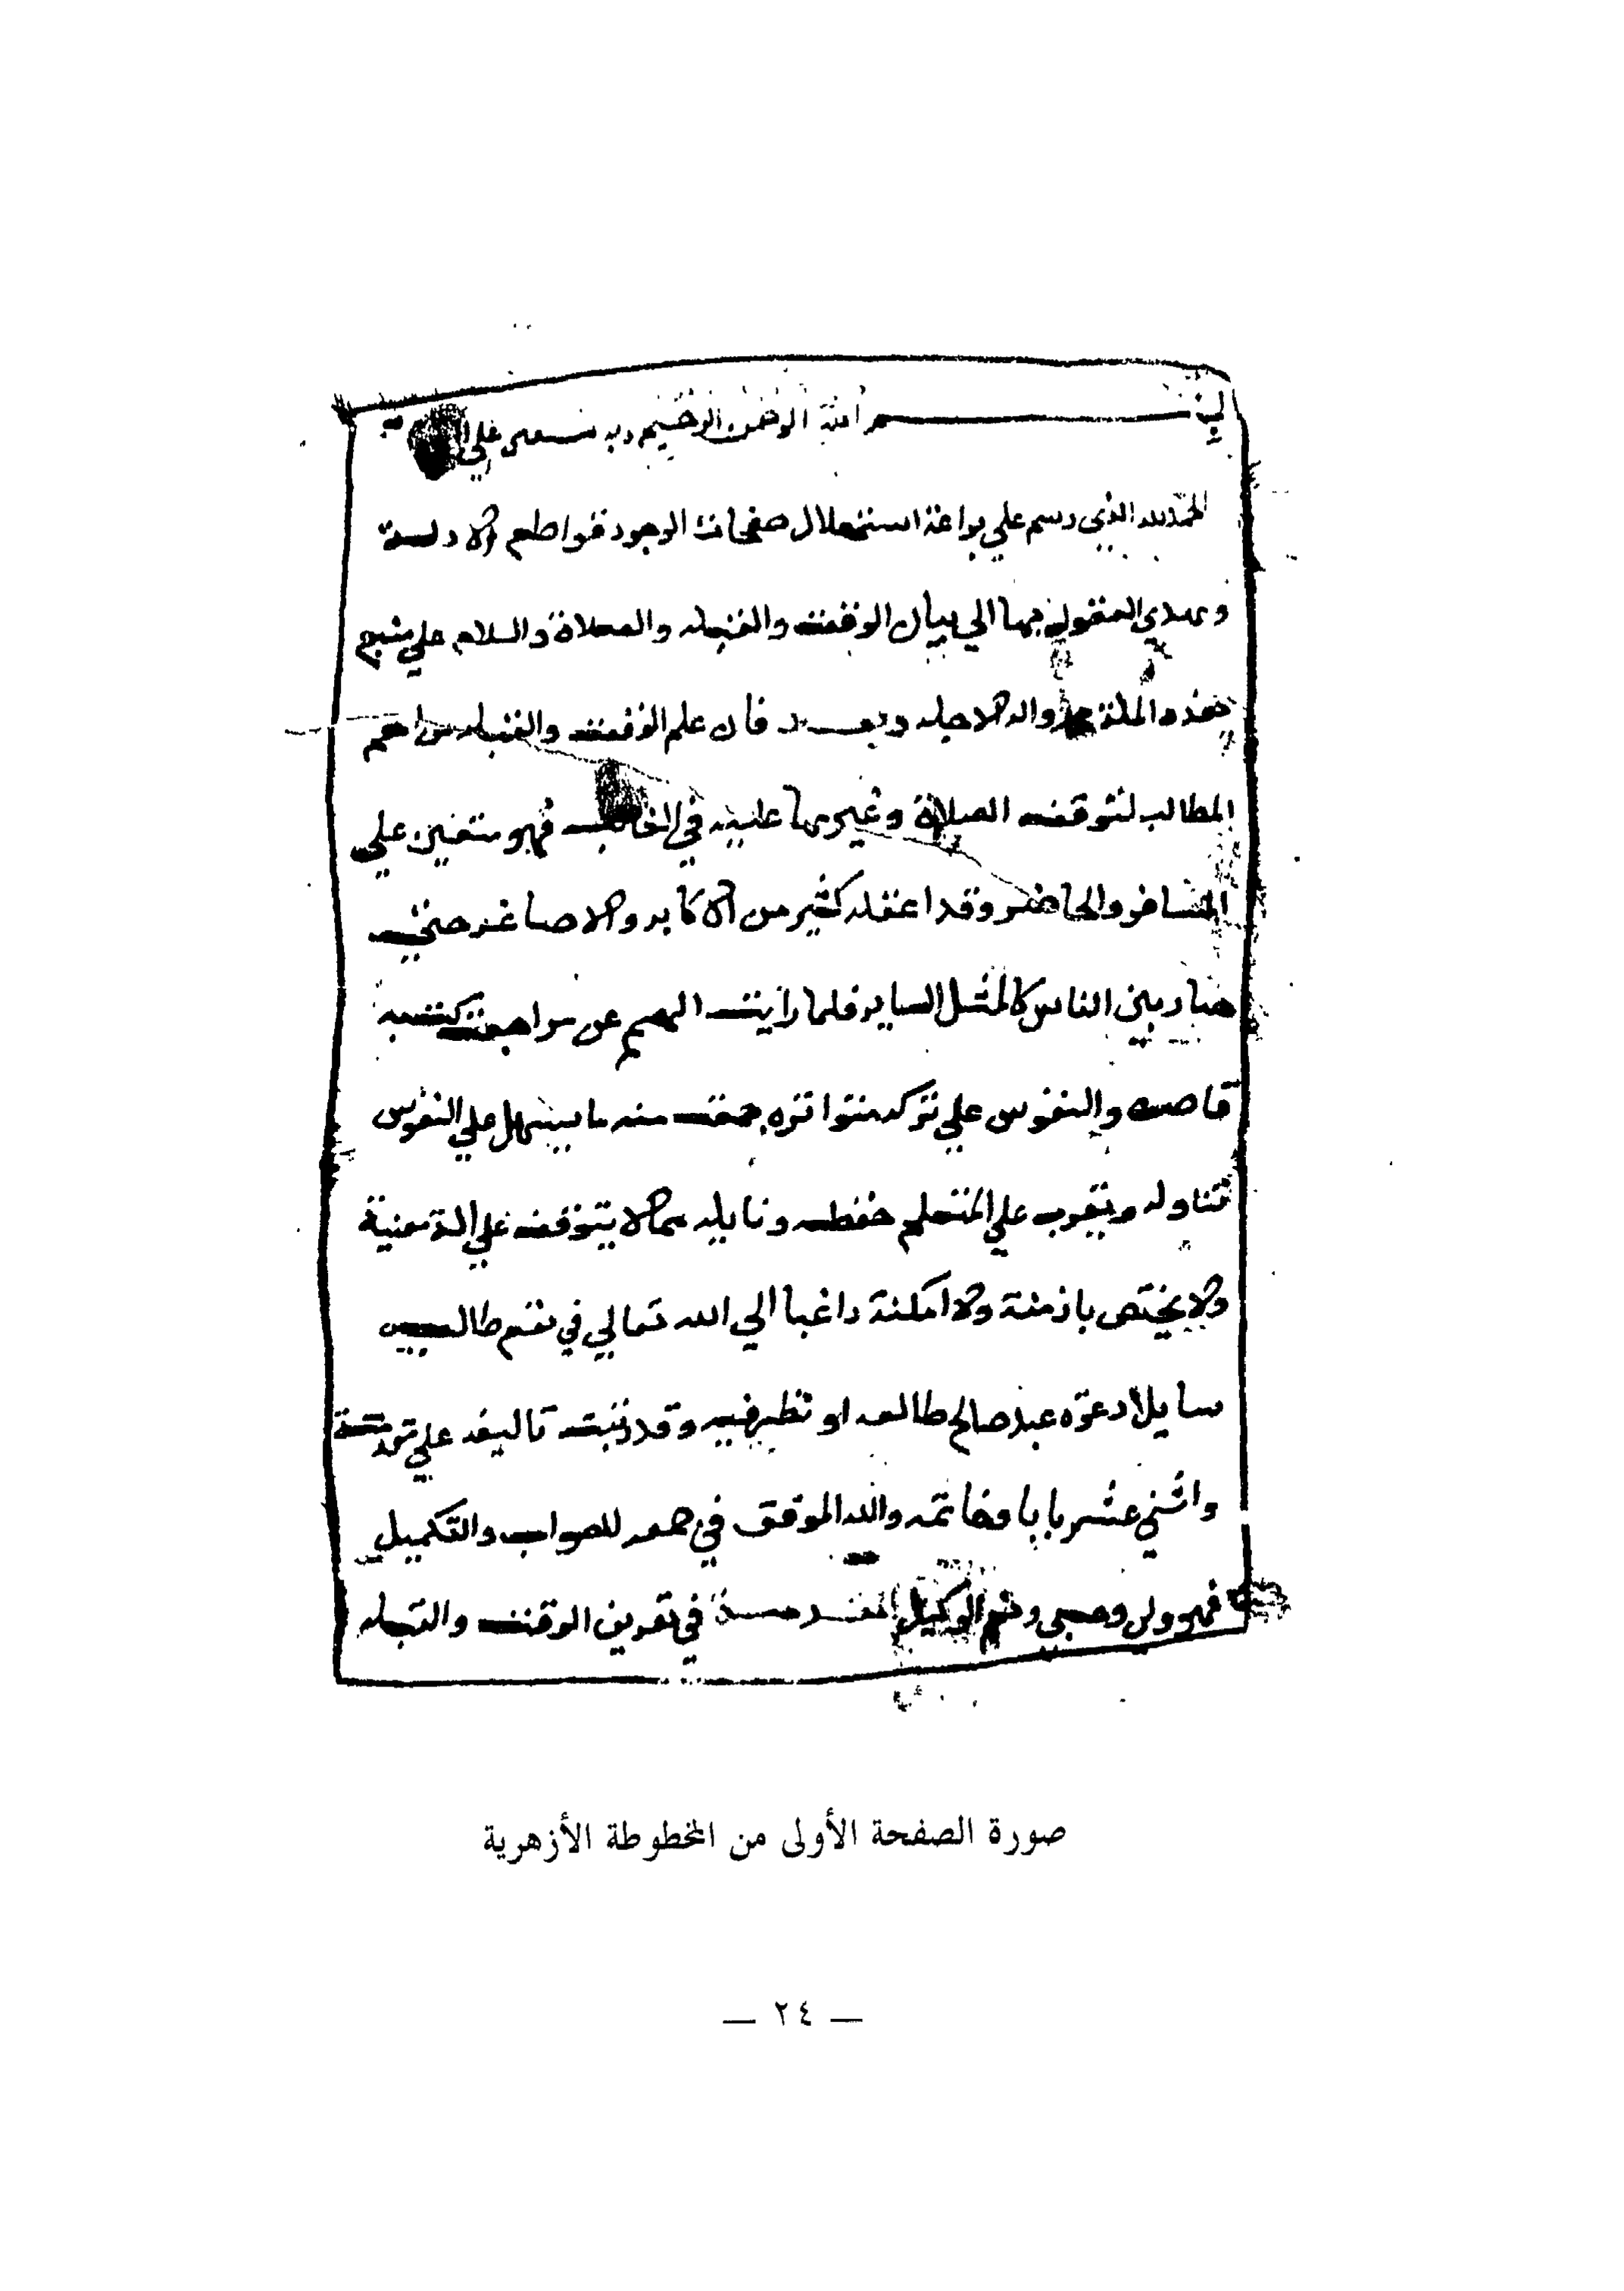 بسم الله الرحمن الرحيم وبه نستعين علي
الحمد لله الذي رسم علي براعة استهلال صفحات الوجود قواطع الادلة
وهدي العقول بها الي بيان الوقت والقبله والصلاة والسلام علي متبع
هذه الملة واله الاجله وبعد فان علم الوقت والقبله من اهم
المطالب لتوقف الصلاة وغيرها عليه في الغالب فهو متعين علي
المسافر والحاضر وقد اغفله كثير من الاكابر والاصاغر حتي
صار بين الناس كالمثل الساير فلما رايت الهمم عن مراجعة كتبه
قاصرة والنفوس علي تركه متواتره جمعت منه ما يسهل علي النفوس
تناوله ويقرب علي المتعلم حفظه مما لا يتوقف علي الة معنية
ولا يختص بازمنة ولا امكنة راغبا الي الله تعالي في نفع طالبيه
سايلا دعوه عبد صالح طالعه او نظر فيه وقد رتبت تاليفه علي مقدمة
واثني عشر بابا وخاتمه والله الموفق في جمعه للصواب والتكميل
فهو ولي وحسبي ونعم الوكيل المقدمة في تعريف الوقت والقبله
صورة الصفحة الأولى من المخطوطة الأزهرية
— ٢٤ —